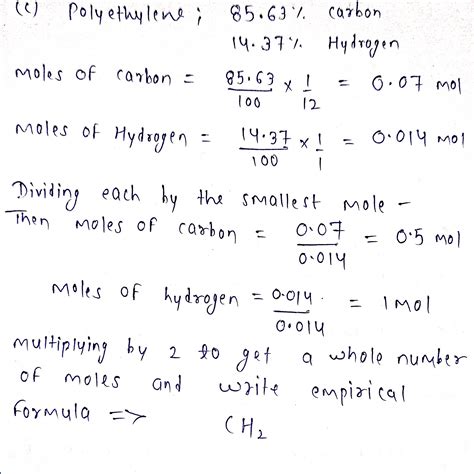 (c) Polyethylene ; 85.63 % carbon
14.37 % Hydrogen
moles of carbon = 85.63/100 × 1/12 = 0.07 mol
moles of Hydrogen = 14.37/100 × 1/1 = 0.014 mol
Dividing each by the smallest mole -
Then moles of carbon = 0.07/0.014 = 0.5 mol
moles of hydrogen = 0.014/0.014 = 1 mol
multiplying by 2 to get a whole number
of moles and write empirical
formula =>
CH2